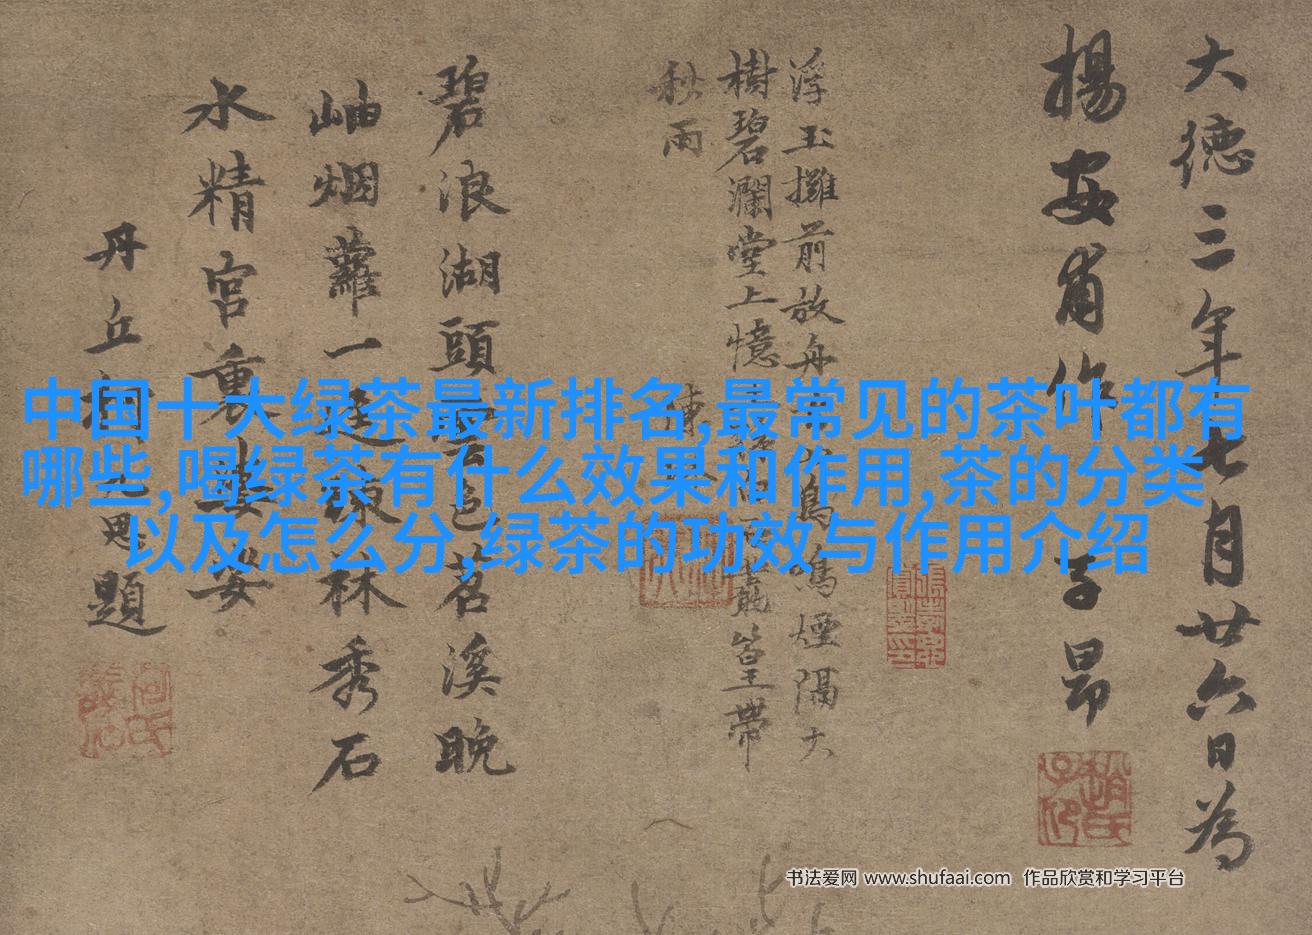 大德三年七月廿六日為
揚安甫作 子昂
浮玉攤前放舟鳴煙隔大
樹碧瀾堂上憶篁帶
秋雨
陳
碧浪湖頭雲色茗溪晚
岫烟蘿一逕疎林秀石
水精宮裏
丹丘柯九思題
中国十大绿茶最新排名,最常见的茶叶都有
哪些,喝绿茶有什么效果和作用,茶的分类
以及怎么分,绿茶的功效与作用介绍
书法爱网 www.shufaai.com 作品欣赏和学习平台